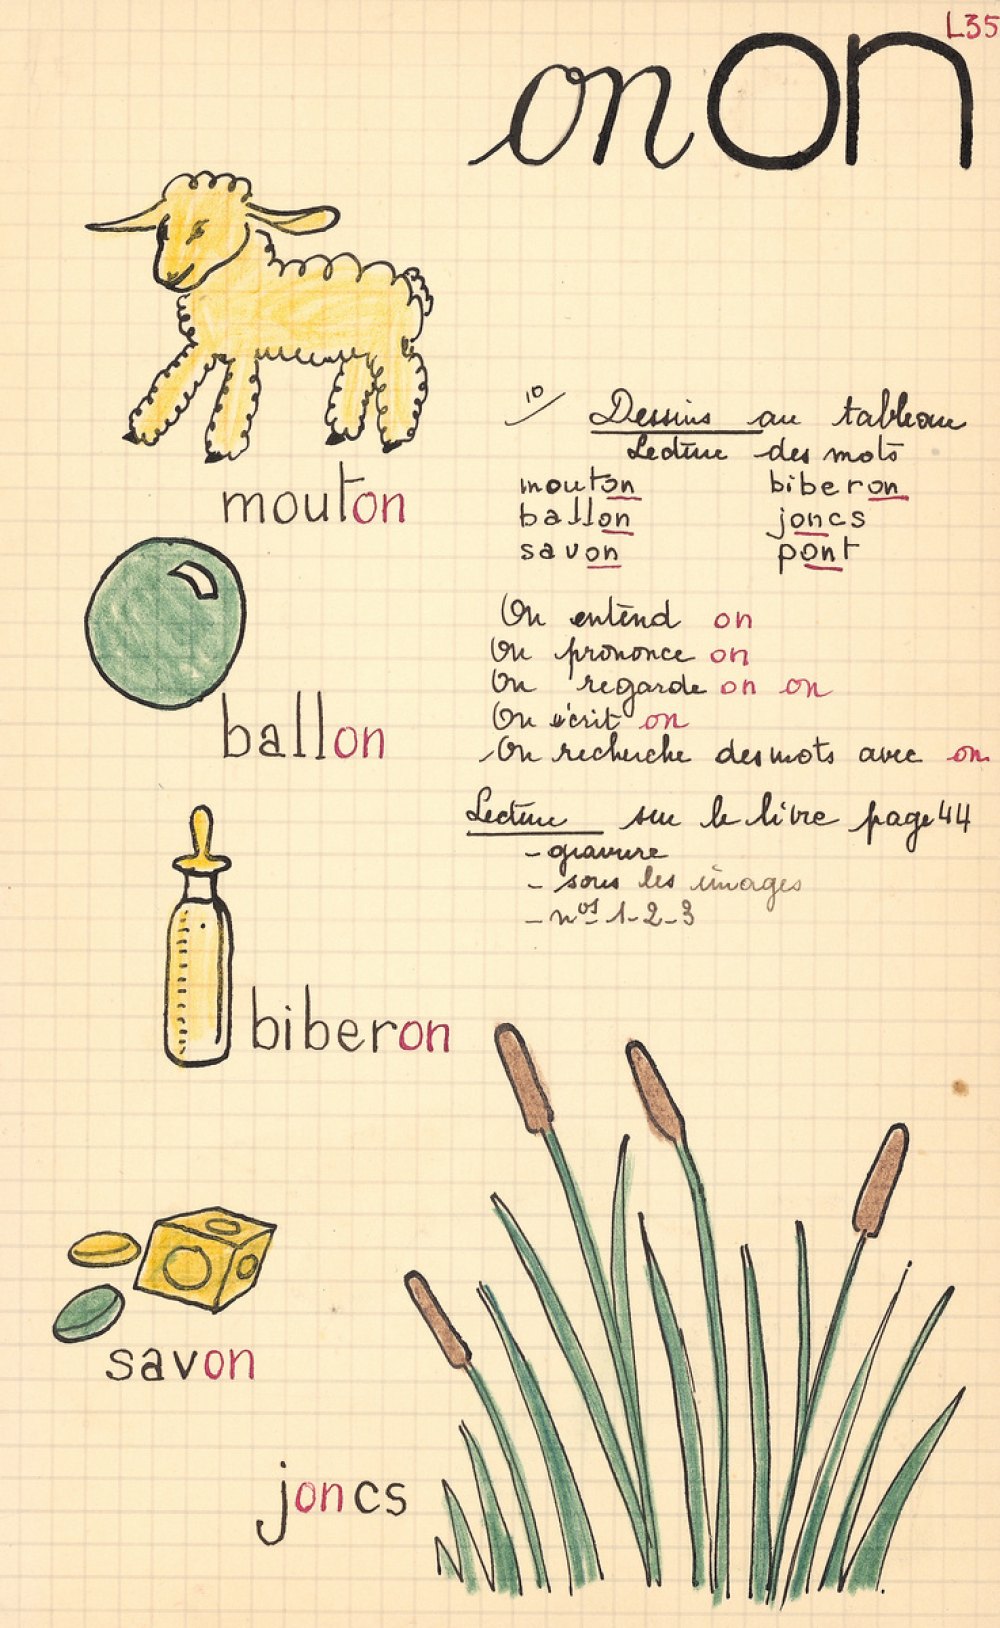 L35
on on
1º/ Dessins au tableau
Lecture des mots
mouton biberon
ballon joncs
savon pont
On entend on
On prononce on
On regarde on on
On écrit on
On recherche des mots avec on
Lecture sur le livre page 44
- gravure
- sous les images
- nos 1-2-3
mouton
ballon
biberon
savon
joncs